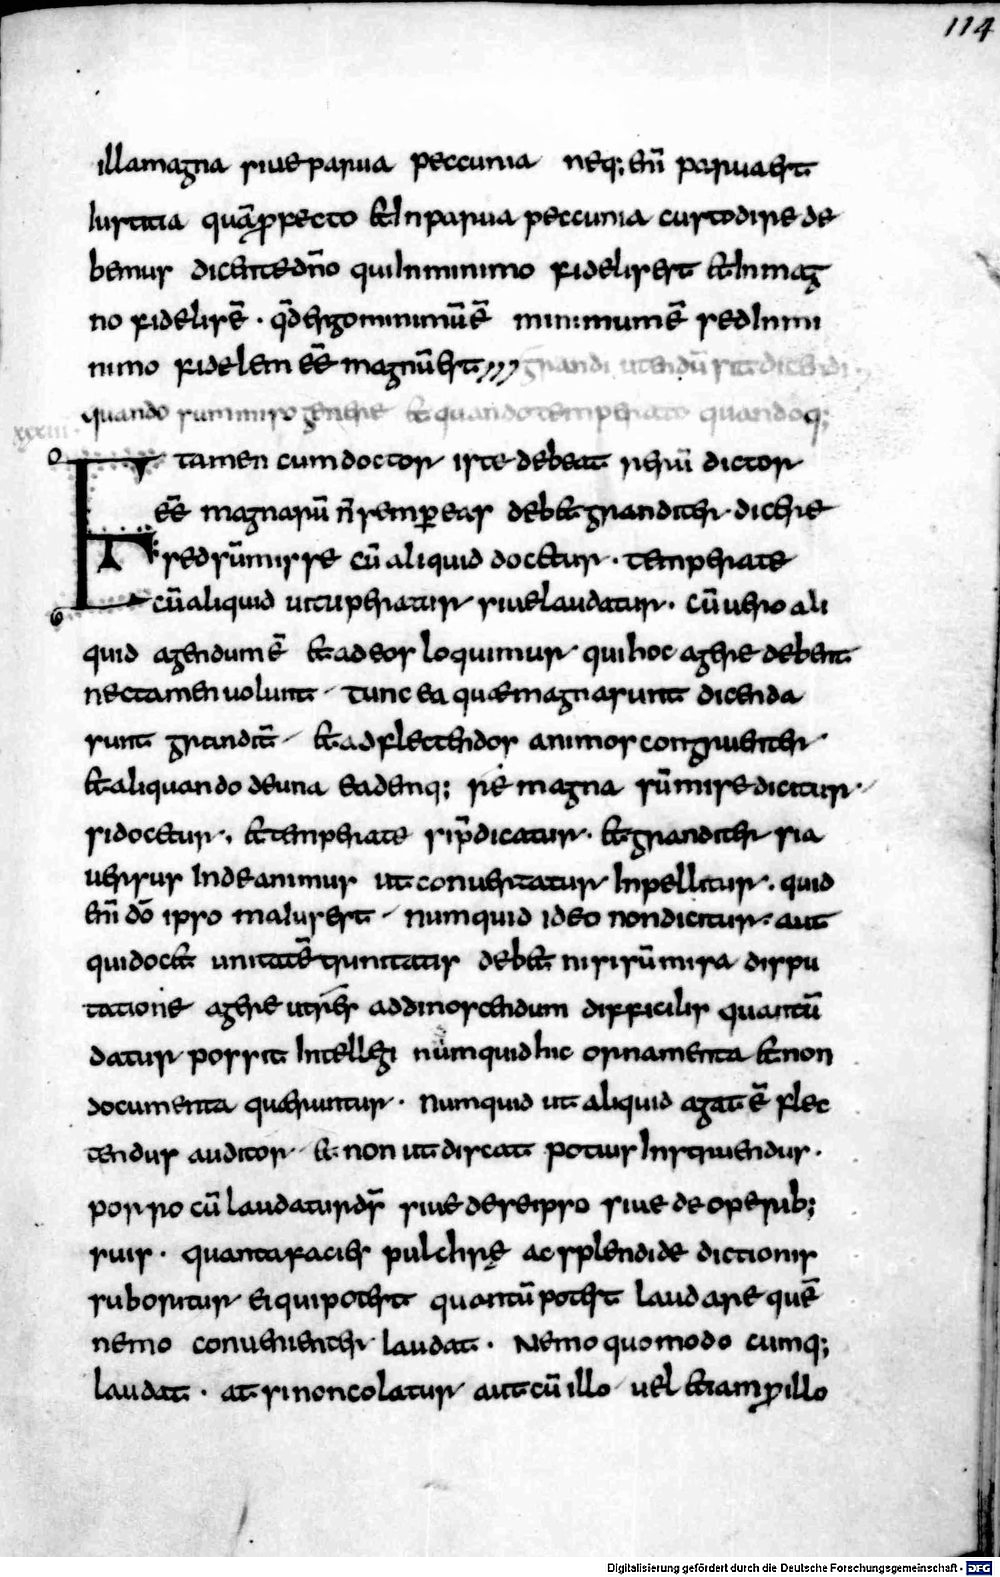 114
illamagna siue parua peccunia neq; enī parua est
Iustitia quā ꝓfecto & In parua peccunia custodire de
bemus dicente dn̄o qui In minimo fidelis est & In mag
no fidelis ē · qd̄ ergo minimū ē minimum ē sed In mi
nimo fidelem eē magnū est grandi utendū sit dicendi
quando summisso genere & quando temperato quandoq;
xxxiii
Et tamen cum doctor iste debeat rerū dictor
eē magnarū n̄ semꝑ eas deb& granditer dicere
sed sūmisse cū aliquid docetur · temperate
cū aliquid uituperatur siue laudatur · cū uero ali
quid agendum ē & ad eos loquimur qui hoc agere debent
nec tamen uolunt tunc ea quæ magna sunt dicenda
sunt grandit̄ & ad flectendos animos congruenter
& aliquando de una eademq; re magna sūmisse dicitur
si docetur · & temperate si p̄dicatur · & granditer si a
uersus Inde animus ut conuertatur Inpellitur · quid
enī dō ipso maius est numquid ideo non dicitur aut
qui doc& unitatē trinitatis deb& nisi sūmissa dispu
tatione agere ut res ad dinoscendum difficilis quantū
datur possit Intellegi numquid hic ornamenta & non
documenta quæruntur · numquid ut aliquid agat ē flec
tendus auditor & non ut discat potius Instruendus ·
porro cū laudatur ds̄ siue de se ipso siue de operib;
suis · quanta facies pulchrę ac splendide dictionis
suboritur ei qui potest quantū potest laudare quē
nemo conuenienter laudat · Nemo quomodo cumq;
laudat · at si non colatur aut cū illo uel &iam ꝓ illo
Digitalisierung gefördert durch die Deutsche Forschungsgemeinschaft - DFG